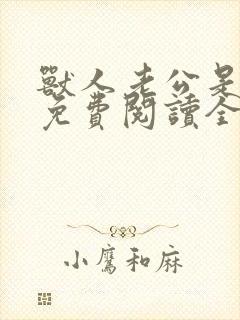 獸人老公是
免費閱讀全
小鷹和麻